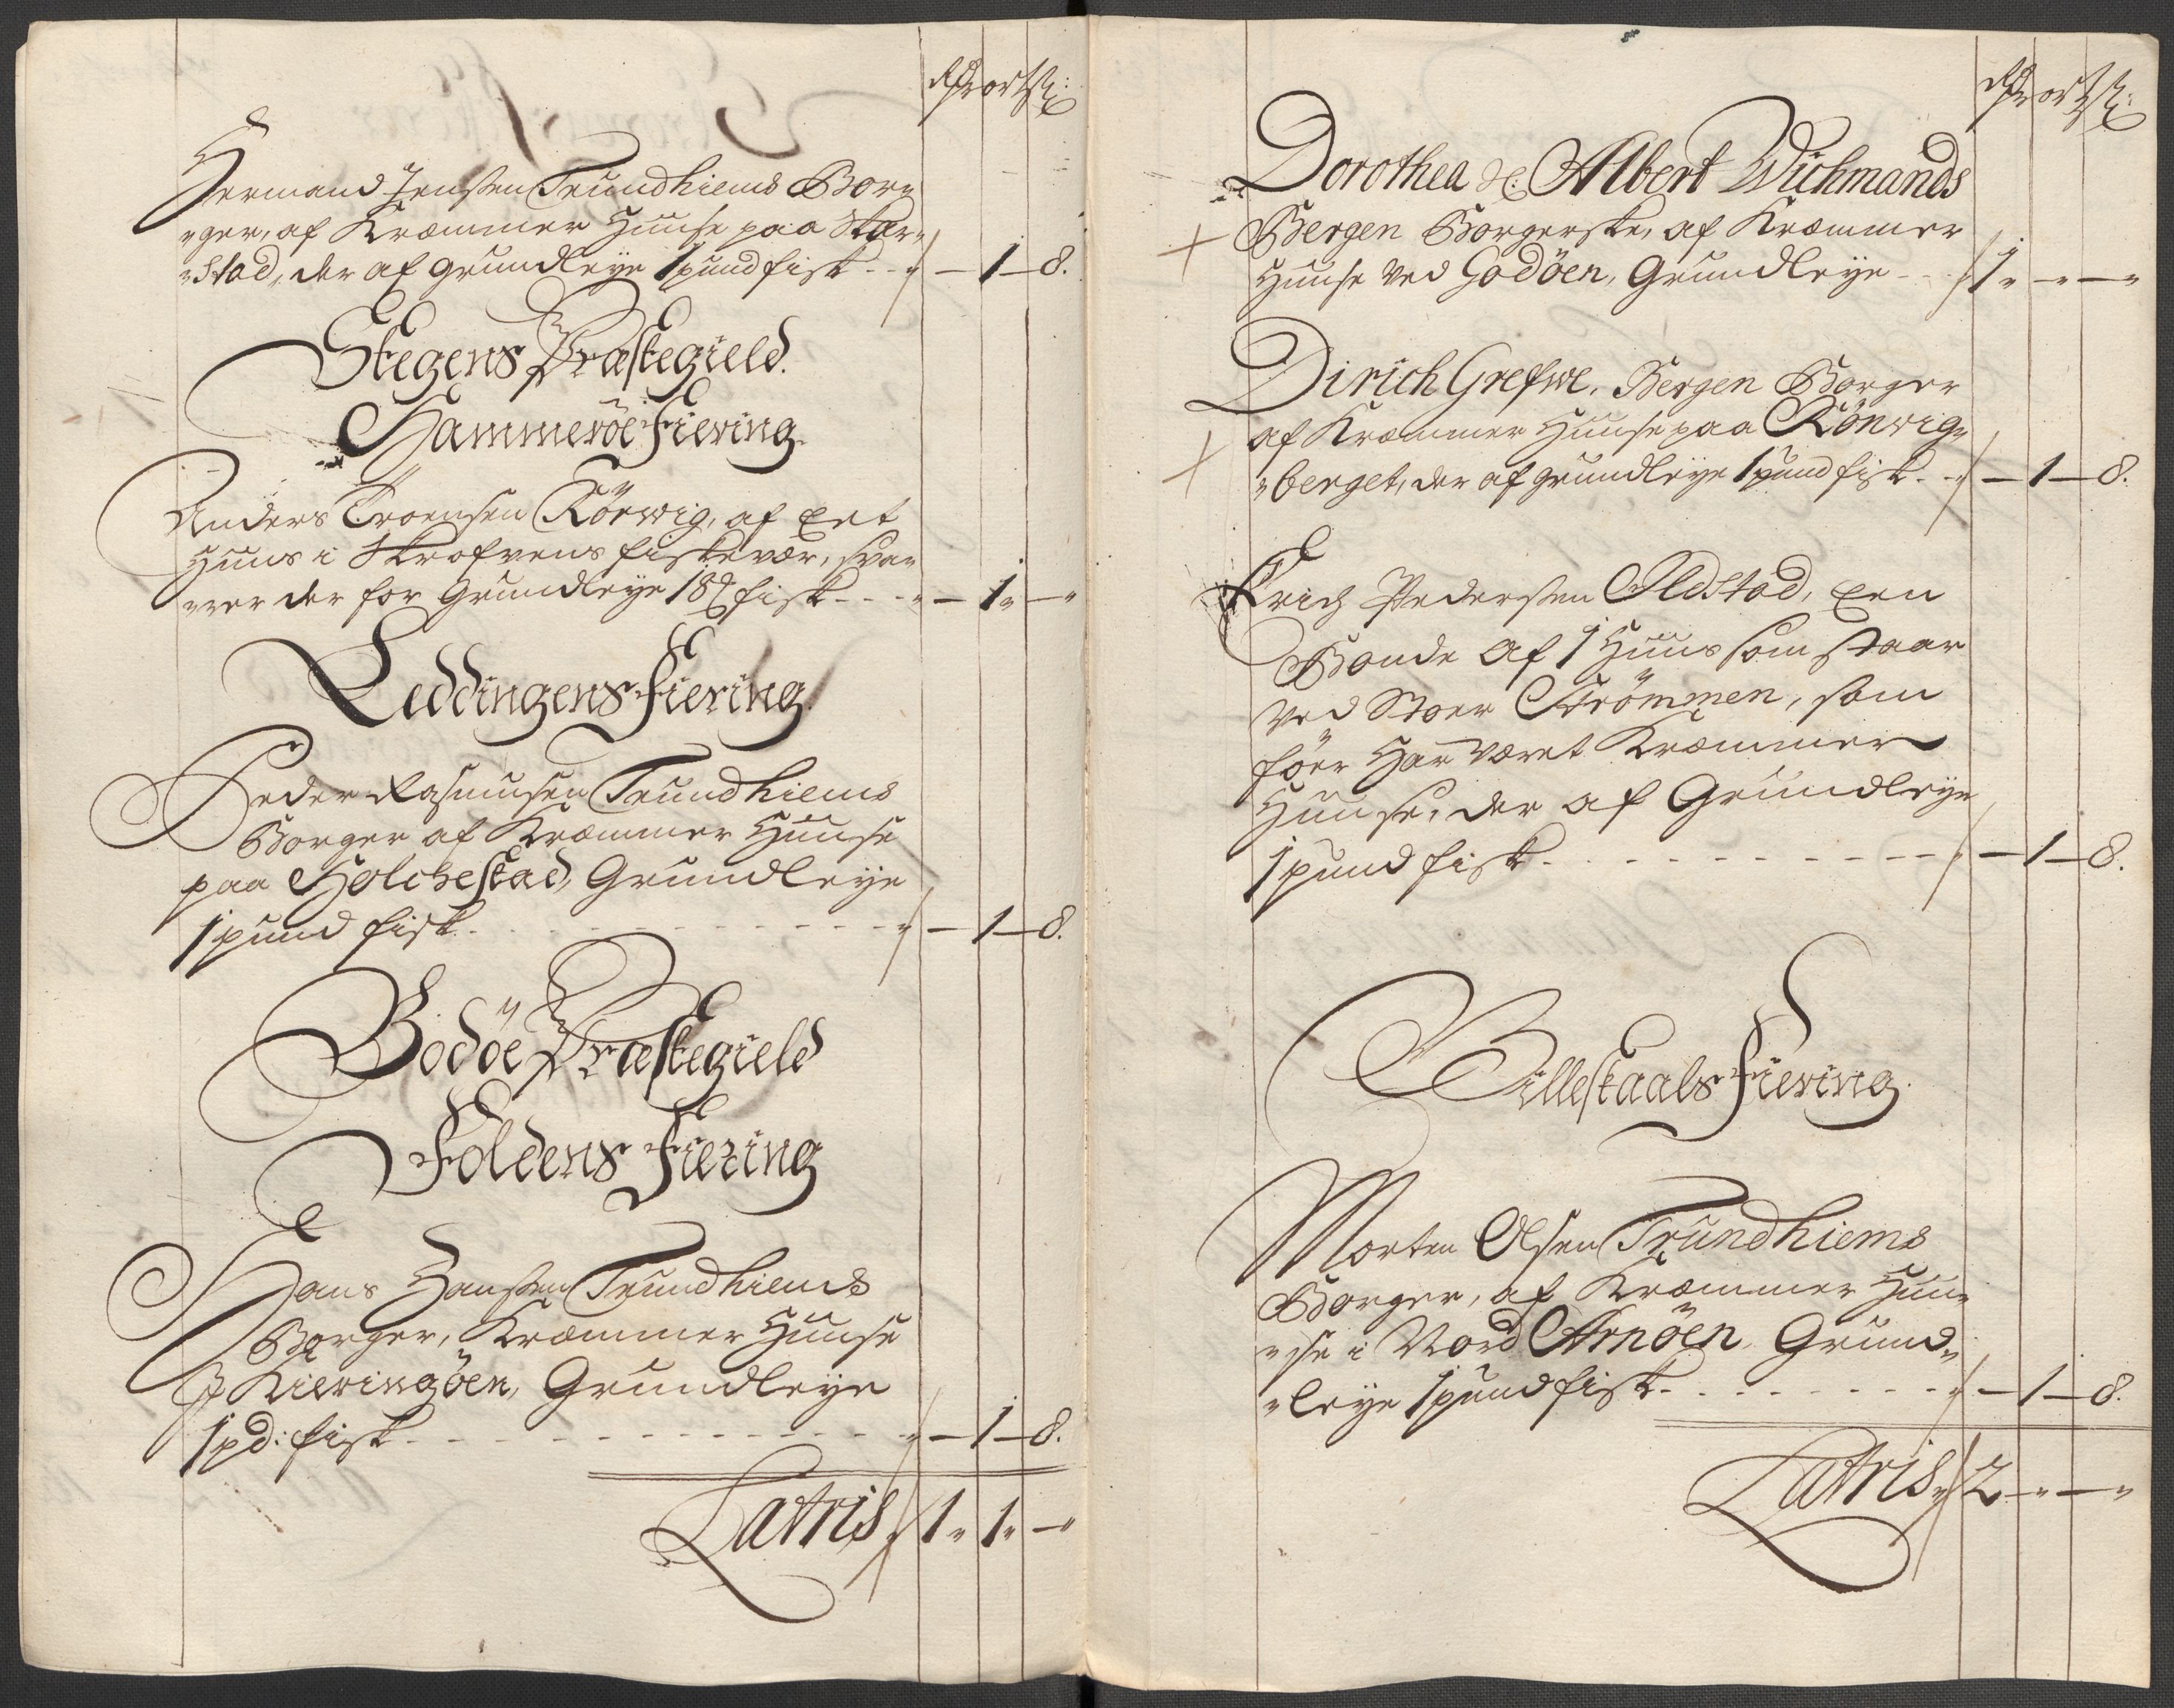 Rdr ort ß:
Hermand Jensen Trundhiems Bor„
„ger, af Kræmmer Huuse paa Skar„
„stad, der af grundleye 1 pund fisk - - „ — 1 — 8.
Stegens Præstegield.
Hammerøe Fiering.
Anders Troensen Rörwig, af Eet
Huus i Skrofvens fiskevær, sva„
„rer der for Grundleye 18 ℔ fisk - - - „ — 1 „ — „
Leddingens Fiering.
Peder Rasmusen Trundhiems
Borger af Kræmmer Huuse
paa Holchestad, Grundleye
1 pund fisk - - - „ — 1 — 8.
Bodöe Præstegield
Foldens Fiering
Hans Hansen Trundhiems
Borger, Kræmmer Huuse
J Kieringöen, Grundleye
1 pd: fisk - - - „ — 1 — 8.
Latris „ 1 „ 1 „ — „
Rdr ort ß:
Dorothea Albert Wichmands
Bergen Borgerske, af Kræmmer
Huuse ved Godöen, Grundleye - - „ 1 „ — „ — „
Dirich Grefwe, Bergen Borger
af Kræmmer Huuse paa Rönvig„
„berget, der af grundleye 1 pund fisk - - „ — 1 — 8.
Erich Pedersen Ildstad, Een
Bonde af 1 Huus som staar
ved Stoer Strömmen, som
föer Har været Kræmmer
Huuse, der af Grundleye
1 pund fisk - - - „ — 1 — 8.
Billestaals Fiering.
Morten Olsen Trundhiems
Borger, af Kræmmer Huu„
„se i Nord Arnöen, Grund„
„leye 1 pund fisk - - - „ — 1 — 8.
Latris „ 2 „ — „ — „